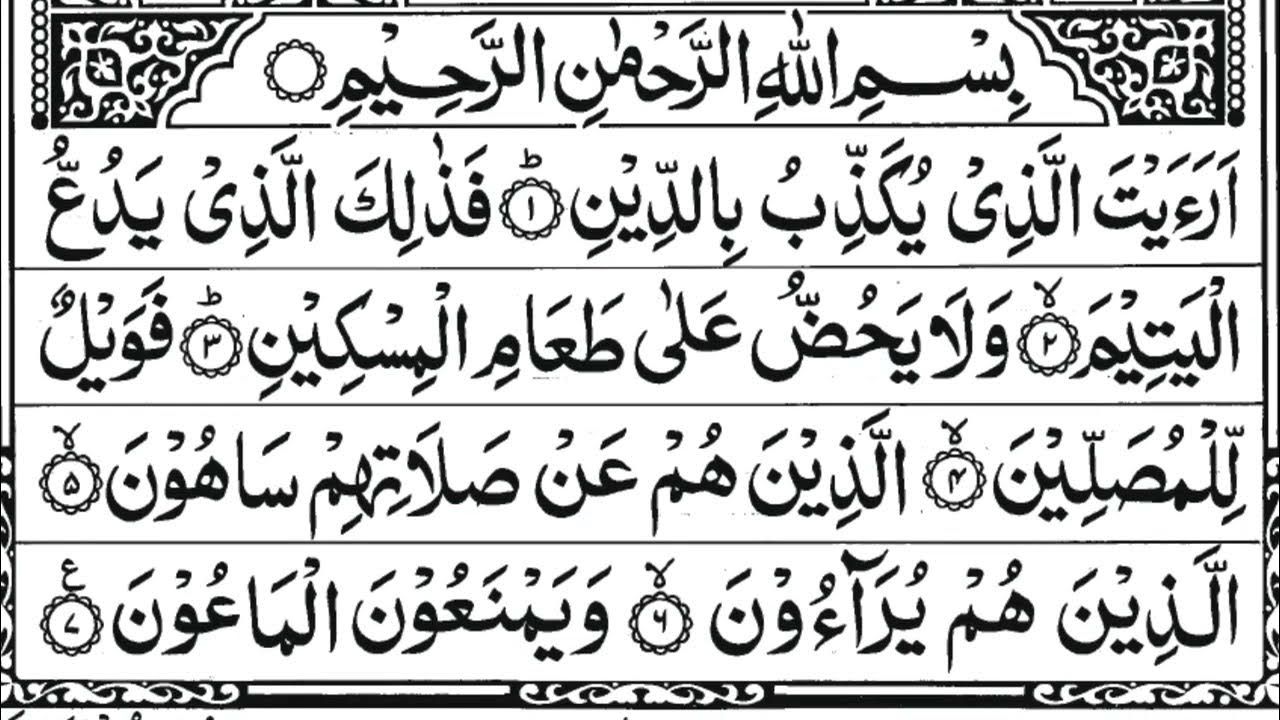 بِسْمِ اللّٰهِ الرَّحْمٰنِ الرَّحِيْمِ
اَرَءَيْتَ الَّذِىْ يُكَذِّبُ بِالدِّيْنِؕ ۱ فَذٰلِكَ الَّذِىْ يَدُعُّ
الْيَتِيْمَۙ ۲ وَلَا يَحُضُّ عَلٰى طَعَامِ الْمِسْكِيْنِؕ ۳ فَوَيْلٌ
لِّلْمُصَلِّيْنَۙ ۴ الَّذِيْنَ هُمْ عَنْ صَلَاتِهِمْ سَاهُوْنَۙ ۵
الَّذِيْنَ هُمْ يُرَآءُوْنَۙ ۶ وَيَمْنَعُوْنَ الْمَاعُوْنَ ع ۷